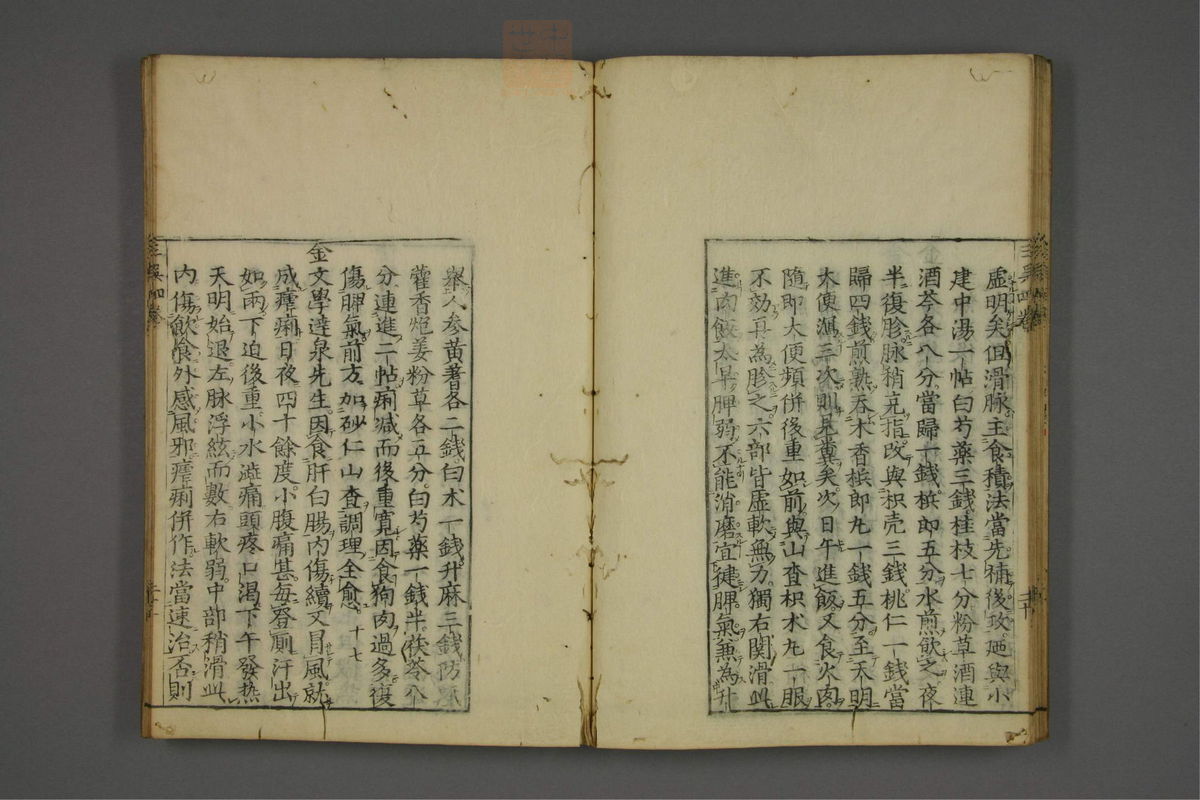 虛明矣但滑脉主食積法當先補後攻廼與小
建中湯一帖白芍藥三錢桂枝七分粉草酒連
酒芩各八分當歸一錢梹郎五分水煎飲之夜
半復胗脉稍充指改與枳壳三錢桃仁一錢當
歸四錢煎熟吞木香梹郎丸一錢五分至天明
大便瀉三次則是糞矣次日午進飯又食火肉
隨即大便頻併後重如前與山査枳术丸一服
不効再為胗之六部皆虛軟無力獨右関滑此
進肉飯太早脾弱不能消磨宜揵脾氣兼為升
舉人參黃耆各二錢白术一錢升麻三錢防風
藿香炮姜粉草各五分白芍藥一錢半茯苓八
分連進二帖痢减而後重寬因食狗肉過多復
傷脾氣前方加砂仁山査調理全愈 十七
金文學達泉先生因食肝白腸内傷續又冐風就
成瘧痢日夜四十餘度小腹痛甚每登厠汗出
如雨下迫後重小水澁痛頭疼口渴下午發熱
天明始退左脉浮絃而數右軟弱中部稍滑此
内傷飲食外感風邪瘧痢併作法當速治否則